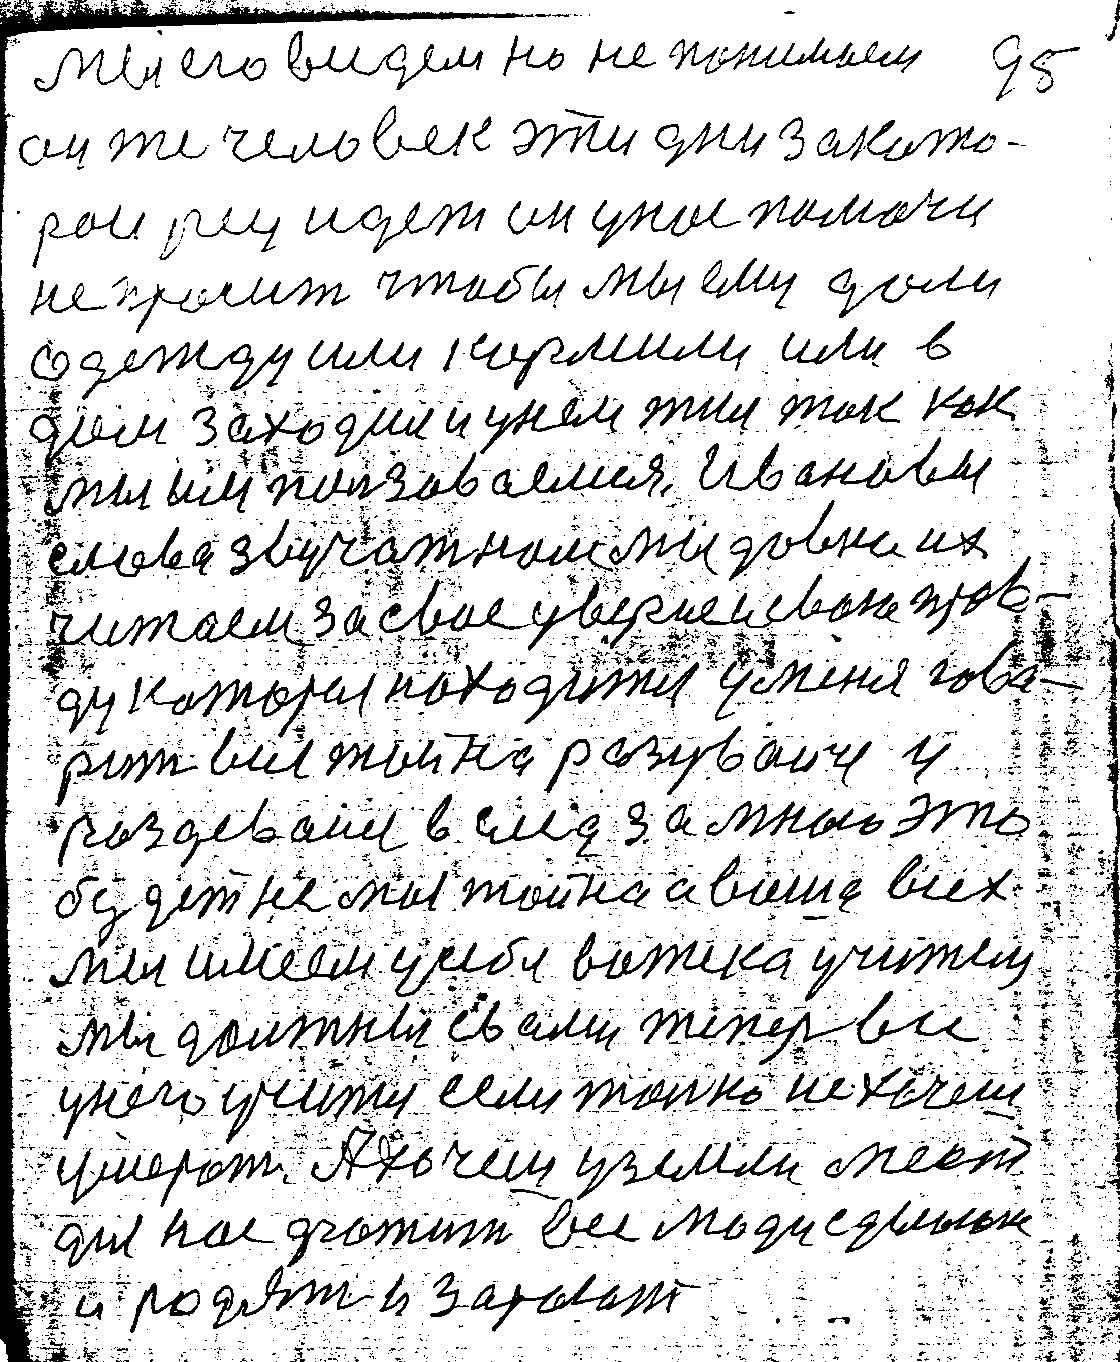 мы его видем но не понимаем 95
он же человек эти дни за кото-
рои рец идет он у нас помочи
не просит чтобы мы ему доли
одежду или кормили или в
дом заходил и унем жил так как
мы им ползоваемся. Ивановы
слова звучат нам мы довно их
читаем за свае уверяем вон прав-
ду которая находится у меня гова-
рит вам тайна разувайся и
раздевайся в след за мною это
будет не моя тайна а ваша всех
мы имеем у себя ватека учителя
мы должны с вами тепер все
унего учится если только не хочеш
умерат. А хочеш у земли мест
для нас хватит все люди сделали
и родят и зароют